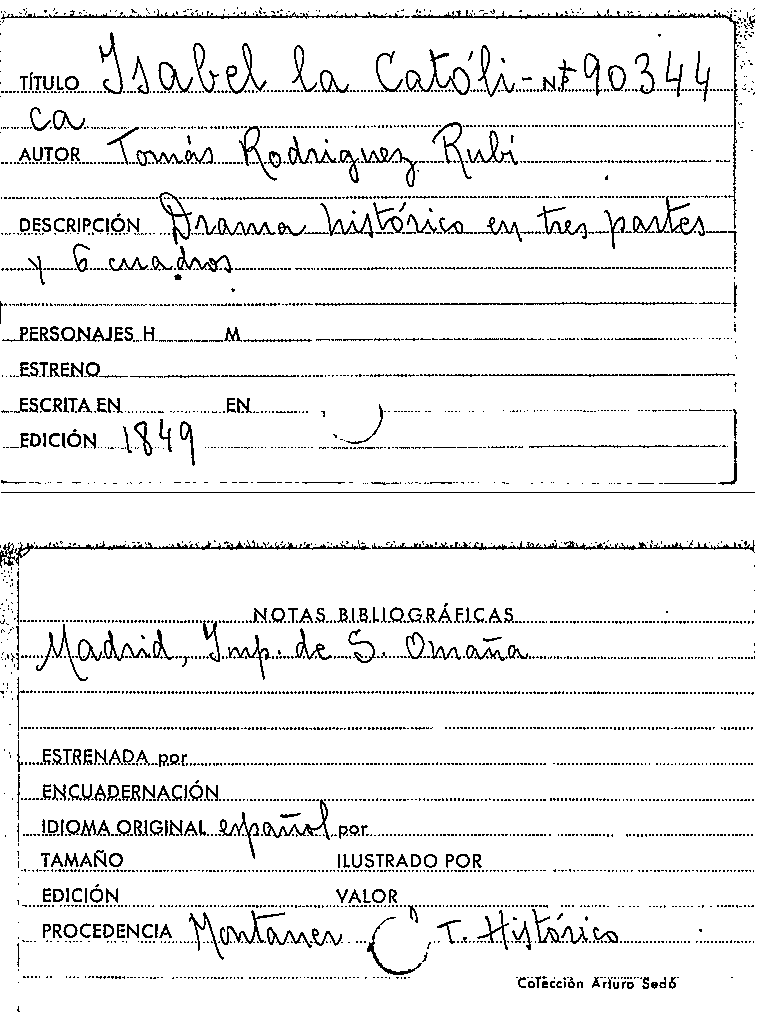 TÍTULO Isabel la Católi- Nº 90344
ca
AUTOR Tomás Rodriguez Rubí
DESCRIPCIÓN Drama histórico en tres partes
y 6 cuadros
PERSONAJES H M
ESTRENO
ESCRITA EN EN
EDICIÓN 1849
NOTAS BIBLIOGRÁFICAS
Madrid, Imp. de S. Omaña
ESTRENADA por
ENCUADERNACIÓN
IDIOMA ORIGINAL español por
TAMAÑO ILUSTRADO POR
EDICIÓN VALOR
PROCEDENCIA Montaner T. Histórico
Colección Arturo Sedó